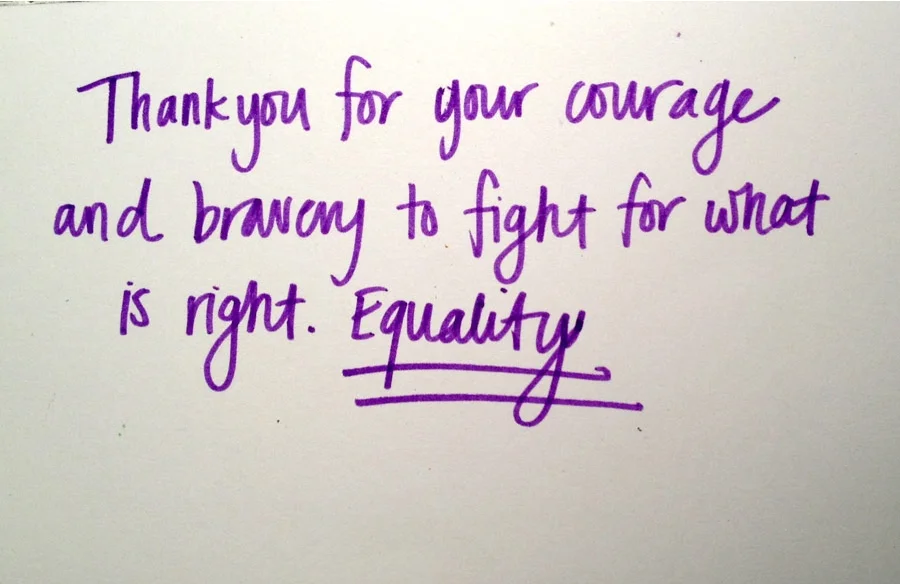 Thank you for your courage
and bravery to fight for what
is right. Equality